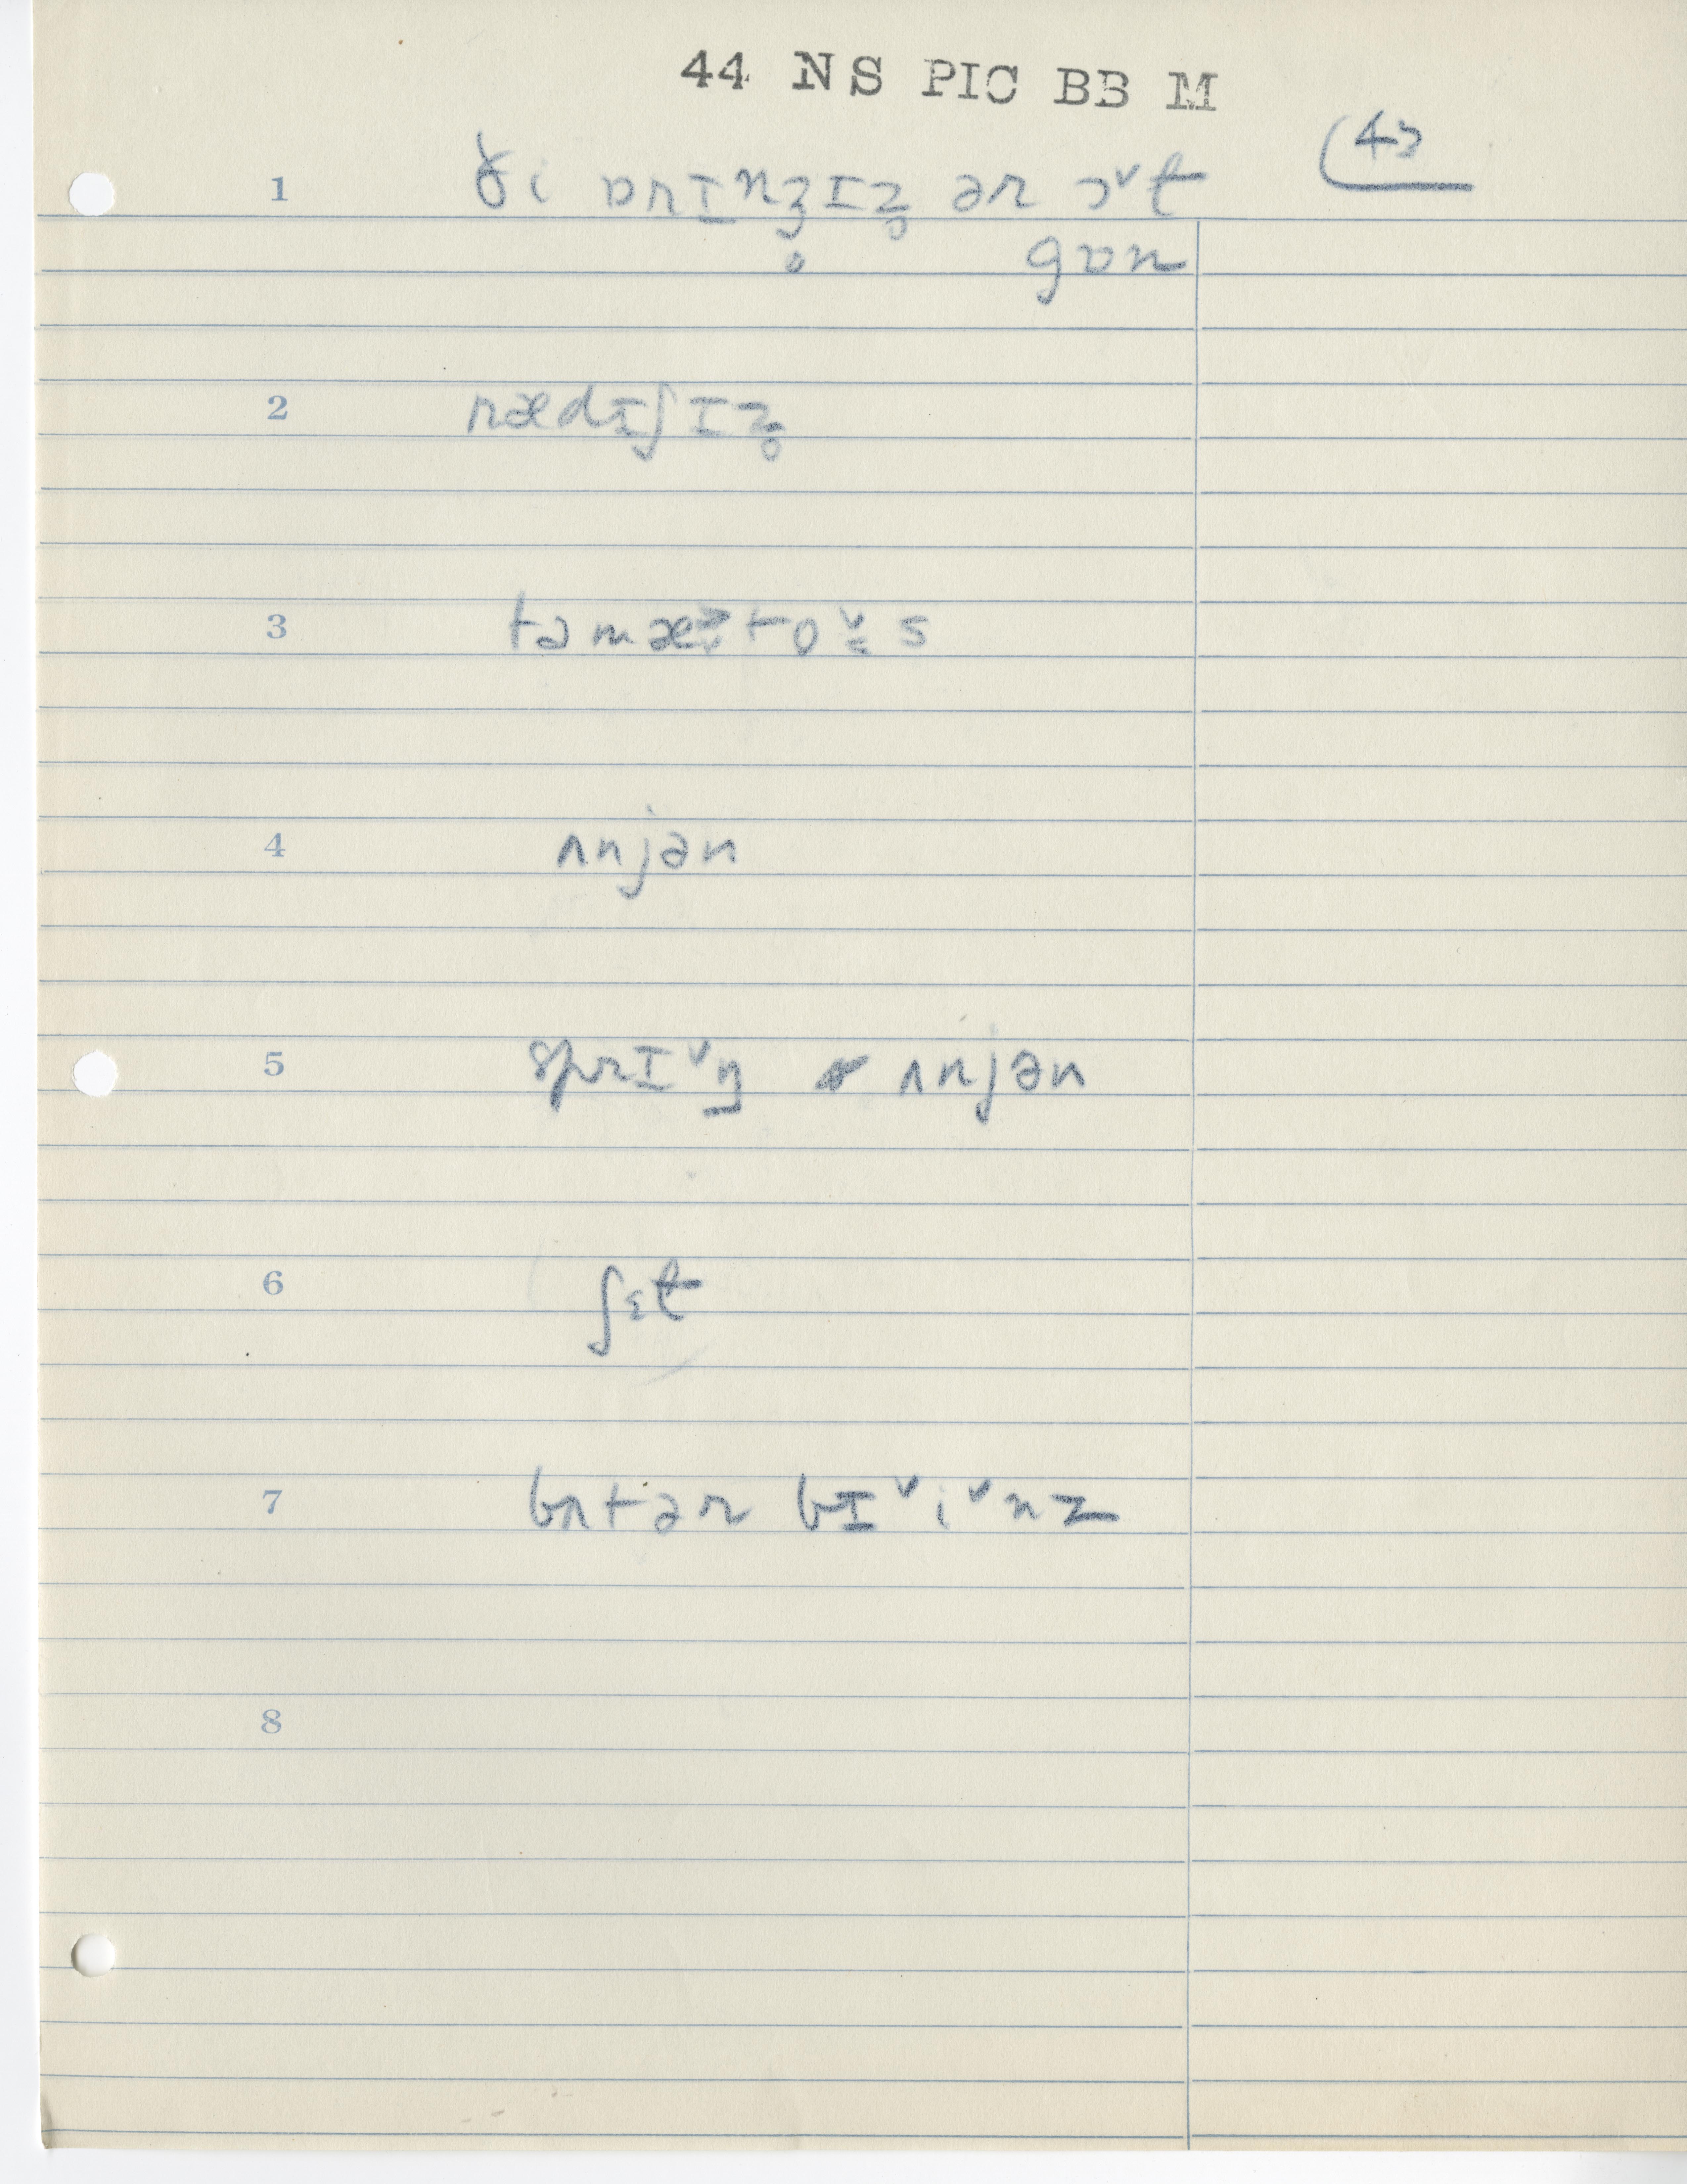 44 NS PIC BB M
(43
1 ði ɒrɪnʒ̥ɪz̥ ər ɔ˅t
gɒn
2 rædɪʃɪz̥
3 təmæ to˅s
4 ʌnjən
5 sprɪ˅ŋ ʌnjən
6 ʃɛt
7 bʌtər bɪ˅i˅nz
8